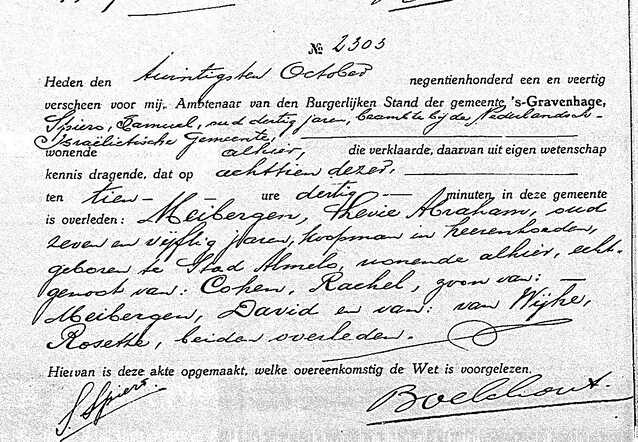 № 2303
Heden den twintigsten October negentienhonderd een en veertig
verscheen voor mij, Ambtenaar van den Burgerlijken Stand der gemeente 's-Gravenhage,
Spiero, Samuel, oud dertig jaren, beambte bij de Nederlandsch-
Israëlietische Gemeente,
wonende alhier, die verklaarde, daarvan uit eigen wetenschap
kennis dragende, dat op achttien dezer,
ten tien ure dertig minuten, in deze gemeente
is overleden: Meibergen, Levie Abraham, oud
zeven en vijftig jaren, koopman in heerenhoeden,
geboren te Stad Almelo, wonende alhier, echt-
genoot van: Cohen, Rachel, zoon van:
Meibergen, David en van: van Wijhe,
Rosette, beiden overleden.
Hiervan is deze akte opgemaakt, welke overeenkomstig de Wet is voorgelezen.
S. Spiero.
Boelchout.